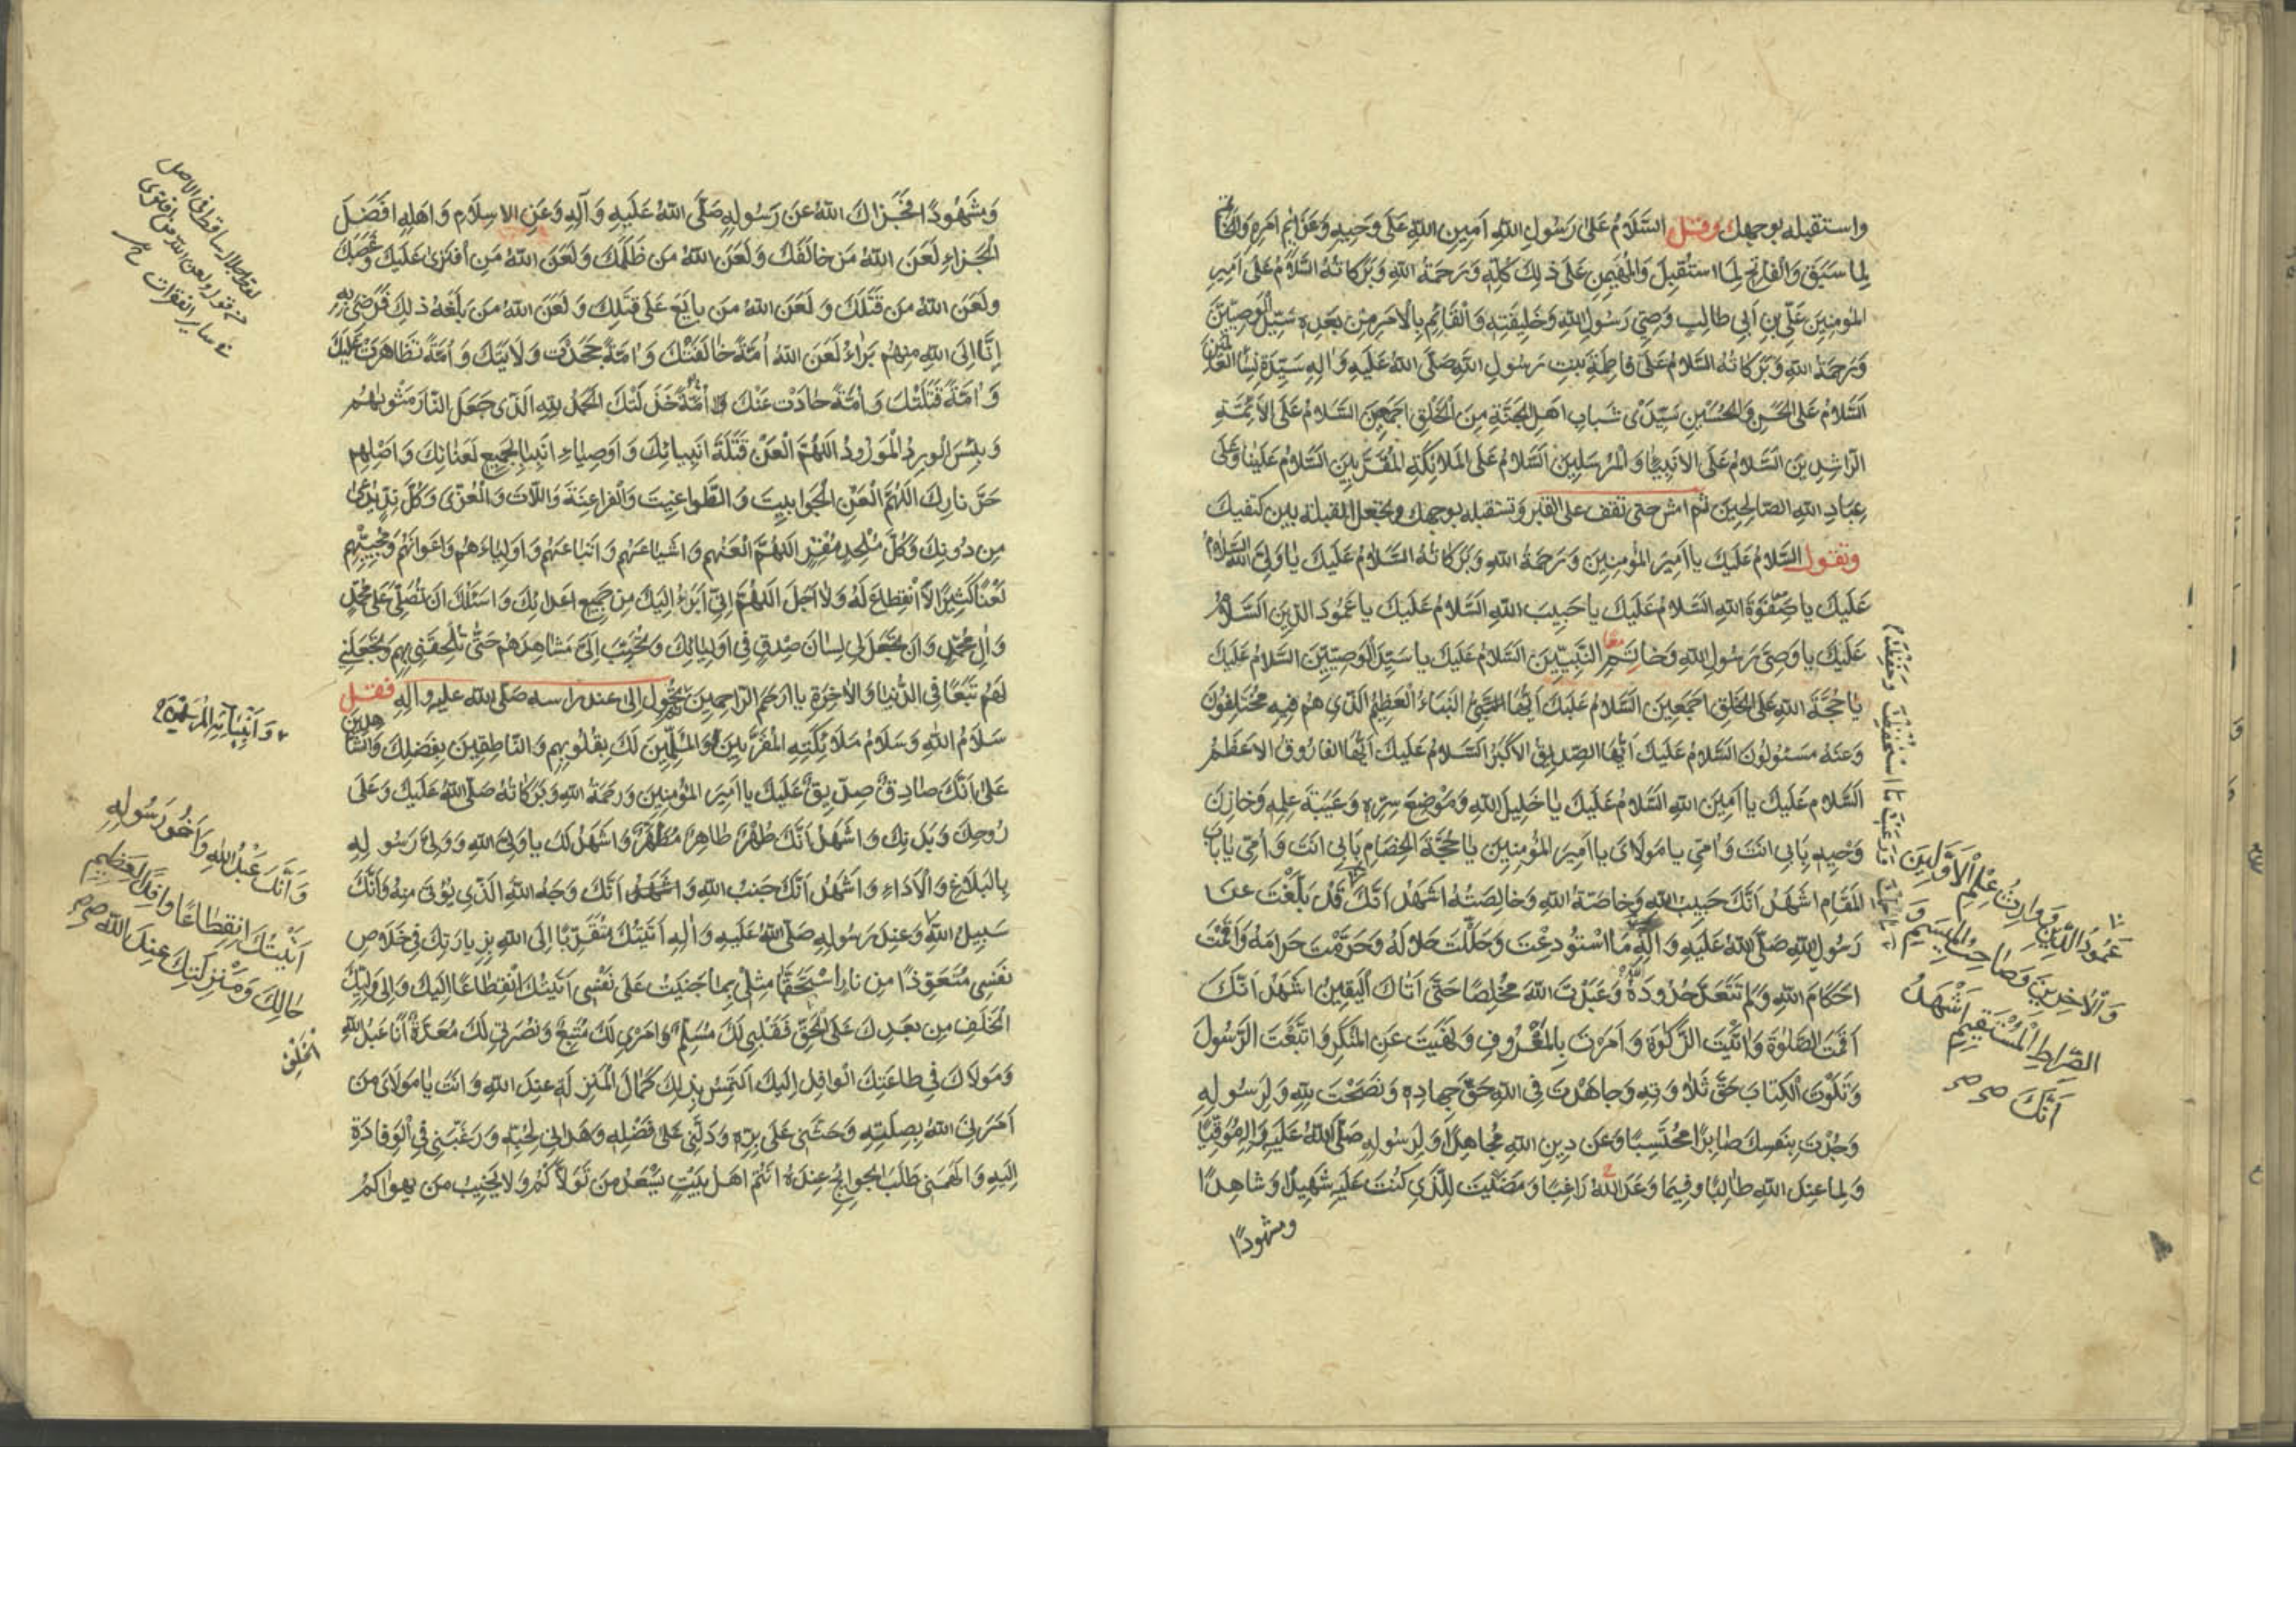 واستقبله بوجهك وقل السَّلَامُ عَلَى رَسُولِ اللهِ اَمِينِ اللهِ عَلَى وَحْيِهِ وَعَزَائِمِ اَمْرِهِ وَالْخَاتِمِ
لِمَا سَبَقَ وَالْفَاتِحِ لِمَا اسْتُقْبِلَ وَالْمُهَيْمِنِ عَلَى ذٰلِكَ كُلِّهِ وَرَحْمَةُ اللهِ وَبَرَكَاتُهُ السَّلَامُ عَلَى اَمِيرِ
المُؤْمِنِينَ عَلِيِّ بْنِ اَبِي طَالِبٍ وَصِيِّ رَسُولِ اللهِ وَخَلِيفَتِهِ وَالْقَائِمِ بِالْاَمْرِ مِنْ بَعْدِهِ سَيِّدِ الْوَصِيِّينَ
وَرَحْمَةُ اللهِ وَبَرَكَاتُهُ السَّلَامُ عَلَى فَاطِمَةَ بِنْتِ رَسُولِ اللهِ صَلَّى اللهُ عَلَيْهِ وَاٰلِهِ سَيِّدَةِ نِسَاءِ الْعَالَمِينَ
اَلسَّلَامُ عَلَى الْحَسَنِ وَالْحُسَيْنِ سَيِّدَيْ شَبَابِ اَهْلِ الْجَنَّةِ مِنَ الْخَلْقِ اَجْمَعِينَ السَّلَامُ عَلَى الْاَئِمَّةِ
الرَّاشِدِينَ السَّلَامُ عَلَى الْاَنْبِيَاءِ وَالْمُرْسَلِينَ السَّلَامُ عَلَى الْمَلَائِكَةِ الْمُقَرَّبِينَ السَّلَامُ عَلَيْنَا وَعَلَى
عِبَادِ اللهِ الصَّالِحِينَ ثم امش حتى تقف على القبر وتستقبله بوجهك وتجعل القبلة بين كتفيك
وتقول السَّلَامُ عَلَيْكَ يَا اَمِيرَ الْمُؤْمِنِينَ وَرَحْمَةُ اللهِ وَبَرَكَاتُهُ السَّلَامُ عَلَيْكَ يَا وَلِيَّ اللهِ السَّلَامُ
عَلَيْكَ يَا صَفْوَةَ اللهِ السَّلَامُ عَلَيْكَ يَا حَبِيبَ اللهِ السَّلَامُ عَلَيْكَ يَا عَمُودَ الدِّينِ السَّلَامُ
عَلَيْكَ يَا وَصِيَّ رَسُولِ اللهِ وَخَاتَمِ النَّبِيِّينَ السَّلَامُ عَلَيْكَ يَا سَيِّدَ الْوَصِيِّينَ السَّلَامُ عَلَيْكَ
يَا حُجَّةَ اللهِ عَلَى الْخَلْقِ اَجْمَعِينَ السَّلَامُ عَلَيْكَ اَيُّهَا النَّبَاُ الْعَظِيمُ الَّذِي هُمْ فِيهِ مُخْتَلِفُونَ
وَعَنْهُ مَسْئُولُونَ السَّلَامُ عَلَيْكَ اَيُّهَا الصِّدِّيقُ الْاَكْبَرُ السَّلَامُ عَلَيْكَ اَيُّهَا الْفَارُوقُ الْاَعْظَمُ
السَّلَامُ عَلَيْكَ يَا اَمِينَ اللهِ السَّلَامُ عَلَيْكَ يَا خَلِيلَ اللهِ وَمَوْضِعَ سِرِّهِ وَعَيْبَةَ عِلْمِهِ وَخَازِنَ
وَحْيِهِ بِاَبِي اَنْتَ وَاُمِّي يَا مَوْلَايَ يَا اَمِيرَ الْمُؤْمِنِينَ يَا حُجَّةَ الْخِصَامِ بِاَبِي اَنْتَ وَاُمِّي يَا بَابَ
الْمَقَامِ اَشْهَدُ اَنَّكَ حَبِيبُ اللهِ وَخَاصَّةُ اللهِ وَخَالِصَتُهُ اَشْهَدُ اَنَّكَ قَدْ بَلَّغْتَ عَنْ
رَسُولِ اللهِ صَلَّى اللهُ عَلَيْهِ وَاٰلِهِ مَا اسْتُودِعْتَ وَحَلَّلْتَ حَلَالَهُ وَحَرَّمْتَ حَرَامَهُ وَاَقَمْتَ
اَحْكَامَ اللهِ وَلَمْ تَتَعَدَّ حُدُودَهُ وَعَبَدْتَ اللهَ مُخْلِصًا حَتَّى اَتَاكَ الْيَقِينُ اَشْهَدُ اَنَّكَ
اَقَمْتَ الصَّلٰوةَ وَاٰتَيْتَ الزَّكٰوةَ وَاَمَرْتَ بِالْمَعْرُوفِ وَنَهَيْتَ عَنِ الْمُنْكَرِ وَاتَّبَعْتَ الرَّسُولَ
وَتَلَوْتَ الْكِتَابَ حَقَّ تِلَاوَتِهِ وَجَاهَدْتَ فِي اللهِ حَقَّ جِهَادِهِ وَنَصَحْتَ لِلّٰهِ وَلِرَسُولِهِ
وَجُدْتَ بِنَفْسِكَ صَابِرًا مُحْتَسِبًا وَعَنْ دِينِ اللهِ مُجَاهِدًا وَلِرَسُولِهِ صَلَّى اللهُ عَلَيْهِ وَاٰلِهِ مُوَقِّيًا
وَلِمَا عِنْدَ اللهِ طَالِبًا وَفِيمَا وَعَدَ اللهُ رَاغِبًا وَمَضَيْتَ لِلَّذِي كُنْتَ عَلَيْهِ شَهِيدًا وَشَاهِدًا
ومشهودًا
عَمُودَ الدِّينِ وَوَارِثُ عِلْمِ الْاَوَّلِينَ
وَالْاٰخِرِينَ وَصَاحِبُ الْمِيسَمِ وَ
الصِّرَاطِ الْمُسْتَقِيمِ اَشْهَدُ
اَنَّكَ
وَمَشْهُودًا فَجَزَاكَ اللهُ عَنْ رَسُولِهِ صَلَّى اللهُ عَلَيْهِ وَآلِهِ وَعَنِ الْاِسْلَامِ وَاَهْلِهِ اَفْضَلَ
الْجَزَاءِ لَعَنَ اللهُ مَنْ خَالَفَكَ وَلَعَنَ اللهُ مَنْ ظَلَمَكَ وَلَعَنَ اللهُ مَنِ افْتَرَى عَلَيْكَ وَغَصَبَكَ
وَلَعَنَ اللهُ مَنْ قَتَلَكَ وَلَعَنَ اللهُ مَنْ بَايَعَ عَلَى قَتْلِكَ وَلَعَنَ اللهُ مَنْ بَلَغَهُ ذٰلِكَ فَرَضِيَ بِهِ
اِنَّا اِلَى اللهِ مِنْهُمْ بَرَاءٌ لَعَنَ اللهُ اُمَّةً خَالَفَتْكَ وَاُمَّةً جَحَدَتْ وَلَايَتَكَ وَاُمَّةً تَظَاهَرَتْ عَلَيْكَ
وَاُمَّةً قَتَلَتْكَ وَاُمَّةً حَادَتْ عَنْكَ وَاُمَّةً خَذَلَتْكَ الْحَمْدُ لِلّٰهِ الَّذِي جَعَلَ النَّارَ مَثْوٰيهُمْ
وَبِئْسَ الْوِرْدُ الْمَوْرُودُ اَللّٰهُمَّ الْعَنْ قَتَلَةَ اَنْبِيَائِكَ وَاَوْصِيَاءِ اَنْبِيَائِكَ بِجَمِيعِ لَعَنَاتِكَ وَاَصْلِهِمْ
حَرَّ نَارِكَ اَللّٰهُمَّ الْعَنِ الْجَوَابِيتَ وَالطَّوَاغِيتَ وَالْفَرَاعِنَةَ وَاللَّاتَ وَالْعُزّٰى وَكُلَّ نِدٍّ يُدْعٰى
مِنْ دُونِكَ وَكُلَّ مُلْحِدٍ مُفْتَرٍ اَللّٰهُمَّ الْعَنْهُمْ وَاَشْيَاعَهُمْ وَاَتْبَاعَهُمْ وَاَوْلِيَاءَهُمْ وَاَعْوَانَهُمْ وَمُحِبِّيهِمْ
لَعْنًا كَثِيرًا لَا انْقِطَاعَ لَهُ وَلَا اَجَلَ اَللّٰهُمَّ اِنِّي اَبْرَءُ اِلَيْكَ مِنْ جَمِيعِ اَعْدَائِكَ وَاَسْئَلُكَ اَنْ تُصَلِّيَ عَلَى مُحَمَّدٍ
وَاٰلِ مُحَمَّدٍ وَاَنْ تَجْعَلَ لِي لِسَانَ صِدْقٍ فِي اَوْلِيَائِكَ وَتُحَبِّبَ اِلَيَّ مَشَاهِدَهُمْ حَتَّى تُلْحِقَنِي بِهِمْ وَتَجْعَلَنِي
لَهُمْ تَبَعًا فِي الدُّنْيَا وَالْاٰخِرَةِ يَا اَرْحَمَ الرَّاحِمِينَ ثم تحول الى عند راسه صلى الله عليه وآله فقل
سَلَامُ اللهِ وَسَلَامُ مَلَائِكَتِهِ الْمُقَرَّبِينَ وَالْمُسَلِّمِينَ لَكَ بِقُلُوبِهِمْ وَالنَّاطِقِينَ بِفَضْلِكَ وَالشَّاهِدِينَ
عَلَى اَنَّكَ صَادِقٌ صِدِّيقٌ عَلَيْكَ يَا اَمِيرَ الْمُؤْمِنِينَ وَرَحْمَةُ اللهِ وَبَرَكَاتُهُ صَلَّى اللهُ عَلَيْكَ وَعَلَى
رُوحِكَ وَبَدَنِكَ وَاَشْهَدُ اَنَّكَ طُهْرٌ طَاهِرٌ مُطَهَّرٌ وَاَشْهَدُ لَكَ يَا وَلِيَّ اللهِ وَوَلِيَّ رَسُولِهِ
بِالْبَلَاغِ وَالْاَدَاءِ وَاَشْهَدُ اَنَّكَ جَنْبُ اللهِ وَاَشْهَدُ اَنَّكَ وَجْهُ اللهِ الَّذِي يُؤْتٰى مِنْهُ وَاَنَّكَ
سَبِيلُ اللهِ وَعِنْدَ رَسُولِهِ صَلَّى اللهُ عَلَيْهِ وَاٰلِهِ اَتَيْتُكَ مُتَقَرِّبًا اِلَى اللهِ بِزِيَارَتِكَ فِي خَلَاصِ
نَفْسِي مُتَعَوِّذًا مِنْ نَارٍ اسْتَحَقَّهَا مِثْلِي بِمَا جَنَيْتُ عَلَى نَفْسِي اَتَيْتُكَ انْقِطَاعًا اِلَيْكَ وَاِلَى وَلِيِّكَ
الْخَلَفِ مِنْ بَعْدِكَ عَلَى الْحَقِّ فَقَلْبِي لَكَ مُسَلِّمٌ وَاَمْرِي لَكَ مُتَّبِعٌ وَنُصْرَتِي لَكَ مُعَدَّةٌ اَنَا عَبْدُ اللهِ
وَمَوْلَاكَ فِي طَاعَتِكَ الْوَافِدُ اِلَيْكَ اَلْتَمِسُ بِذٰلِكَ كَمَالَ الْمَنْزِلَةِ عِنْدَ اللهِ وَاَنْتَ يَا مَوْلَايَ مَنْ
اَمَرَنِيَ اللهُ بِصِلَتِهِ وَحَثَّنِي عَلَى بِرِّهِ وَدَلَّنِي عَلَى فَضْلِهِ وَهَدَانِي لِحُبِّهِ وَرَغَّبَنِي فِي الْوِفَادَةِ
اِلَيْهِ وَاَلْهَمَنِي طَلَبَ الْحَوَائِجِ عِنْدَهُ اَنْتُمْ اَهْلُ بَيْتٍ يَسْعَدُ مَنْ تَوَلَّاكُمْ وَلَا يَخِيبُ مَنْ يَهْوَاكُمْ
وَاَنْبِيَائِهِ الْمُرْسَلِينَ
وَاَنَّكَ عَبْدُ اللهِ وَاَخُو رَسُولِهِ
اَتَيْتُكَ انْقِطَاعًا وَافِدًا لِعَظِيمِ
حَالِكَ وَمَنْزِلَتِكَ عِنْدَ اللهِ